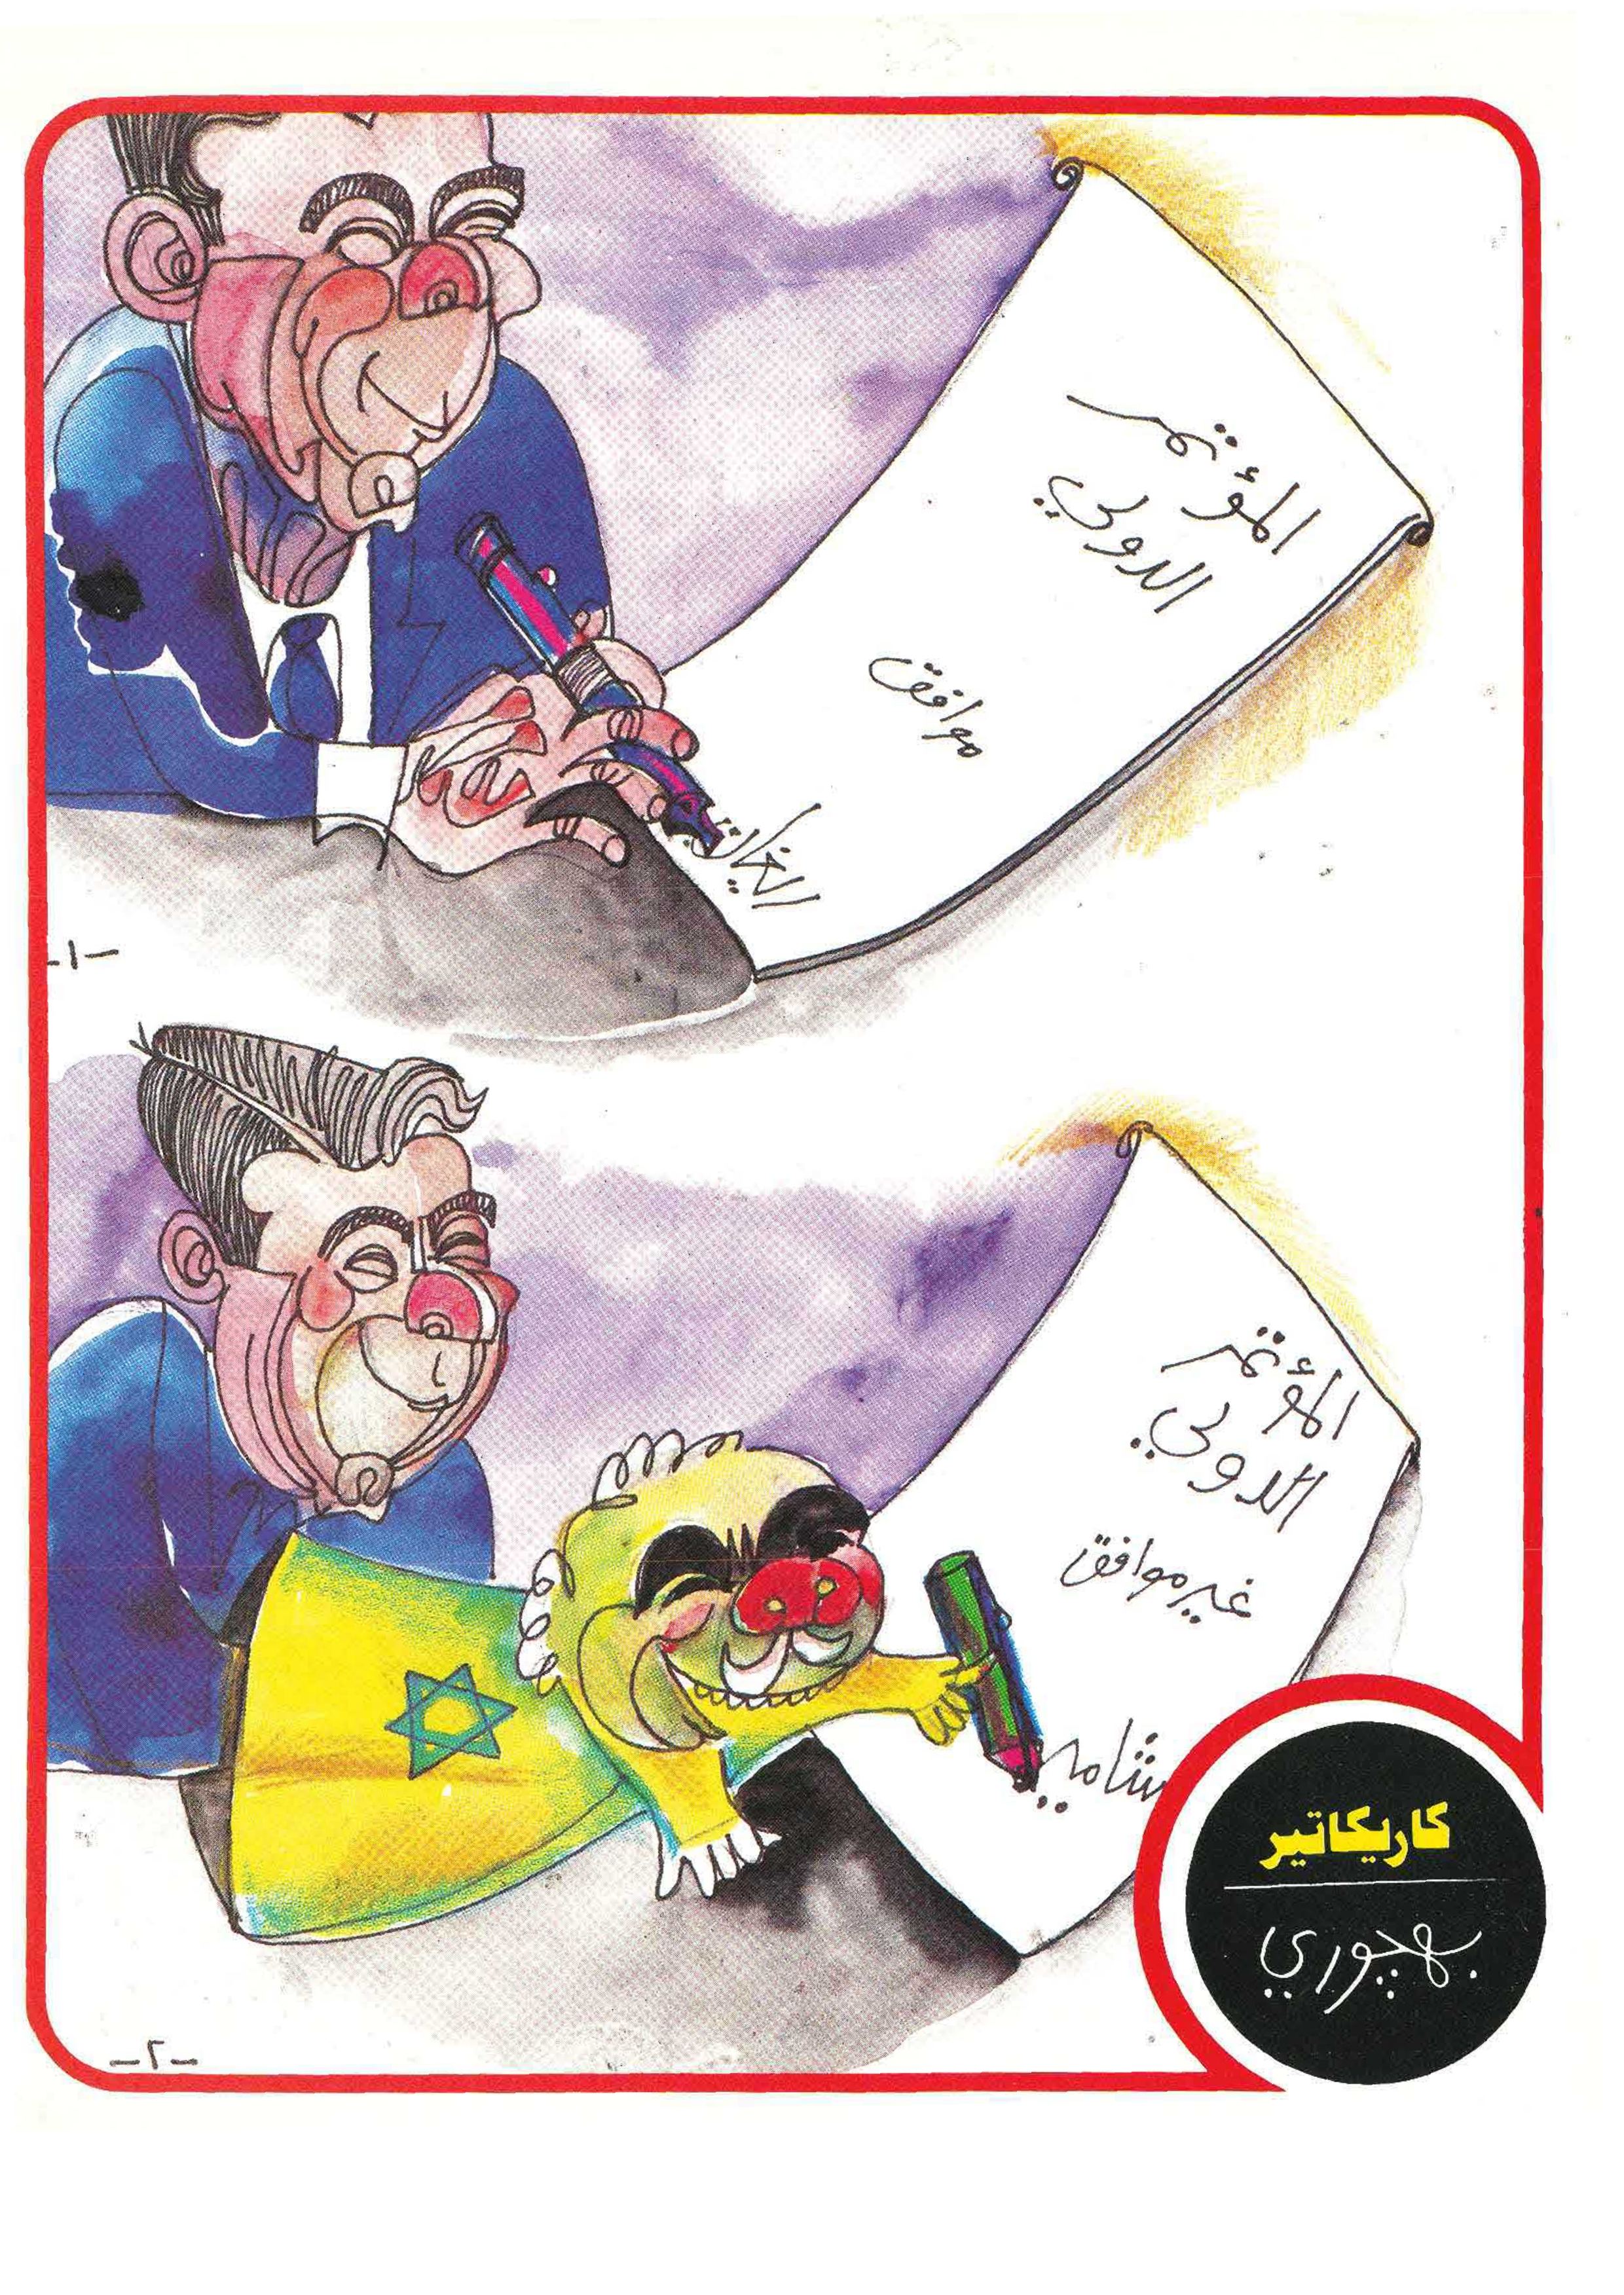 المؤتمر
الدولي
موافق
-١-
المؤتمر
الدولي
غير موافق
شامير
كاريكاتير
بهچوري
-٢-